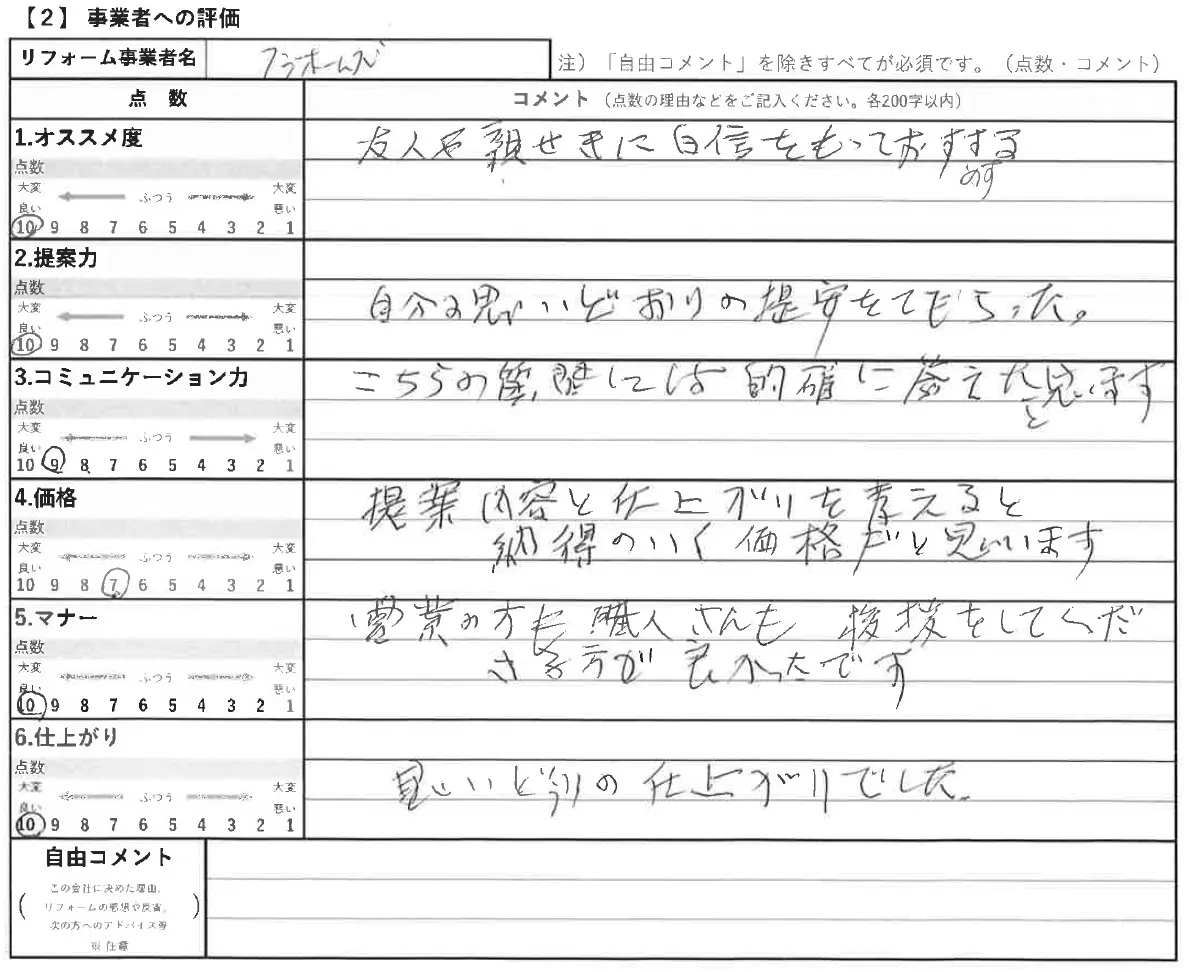 【2】 事業者への評価
リフォーム事業者名 フラホームズ
注）「自由コメント」を除きすべてが必須です。（点数・コメント）
点 数 コメント（点数の理由などをご記入ください。各200字以内）
1.オススメ度
点数
友人や親せきに自信をもっておすする
めす
大変 ふつう 大変
良い 悪い
10 9 8 7 6 5 4 3 2 1
2.提案力
点数
自分の思いどおりの提案をてもらった。
大変 ふつう 大変
良い 悪い
10 9 8 7 6 5 4 3 2 1
3.コミュニケーション力
こちらの しては的確に答えた思います
と
点数
大変 ふつう 大変
良い 悪い
10 9 8 7 6 5 4 3 2 1
4.価格
提案内容と仕上がりを考えると
点数
納得のいく価格だと思います
大変 ふつう 大変
良い 悪い
10 9 8 7 6 5 4 3 2 1
5.マナー
営業の方も職人さんも 挨拶をしてくだ
点数
さる方が良かったです
大変 ふつう 大変
良い 悪い
10 9 8 7 6 5 4 3 2 1
6.仕上がり
点数
思いどうりの仕上がりでした。
大変 ふつう 大変
良い 悪い
10 9 8 7 6 5 4 3 2 1
自由コメント
この会社に決めた理由、
リフォームの感想や反省、
次の方へのアドバイス等
※ 任意